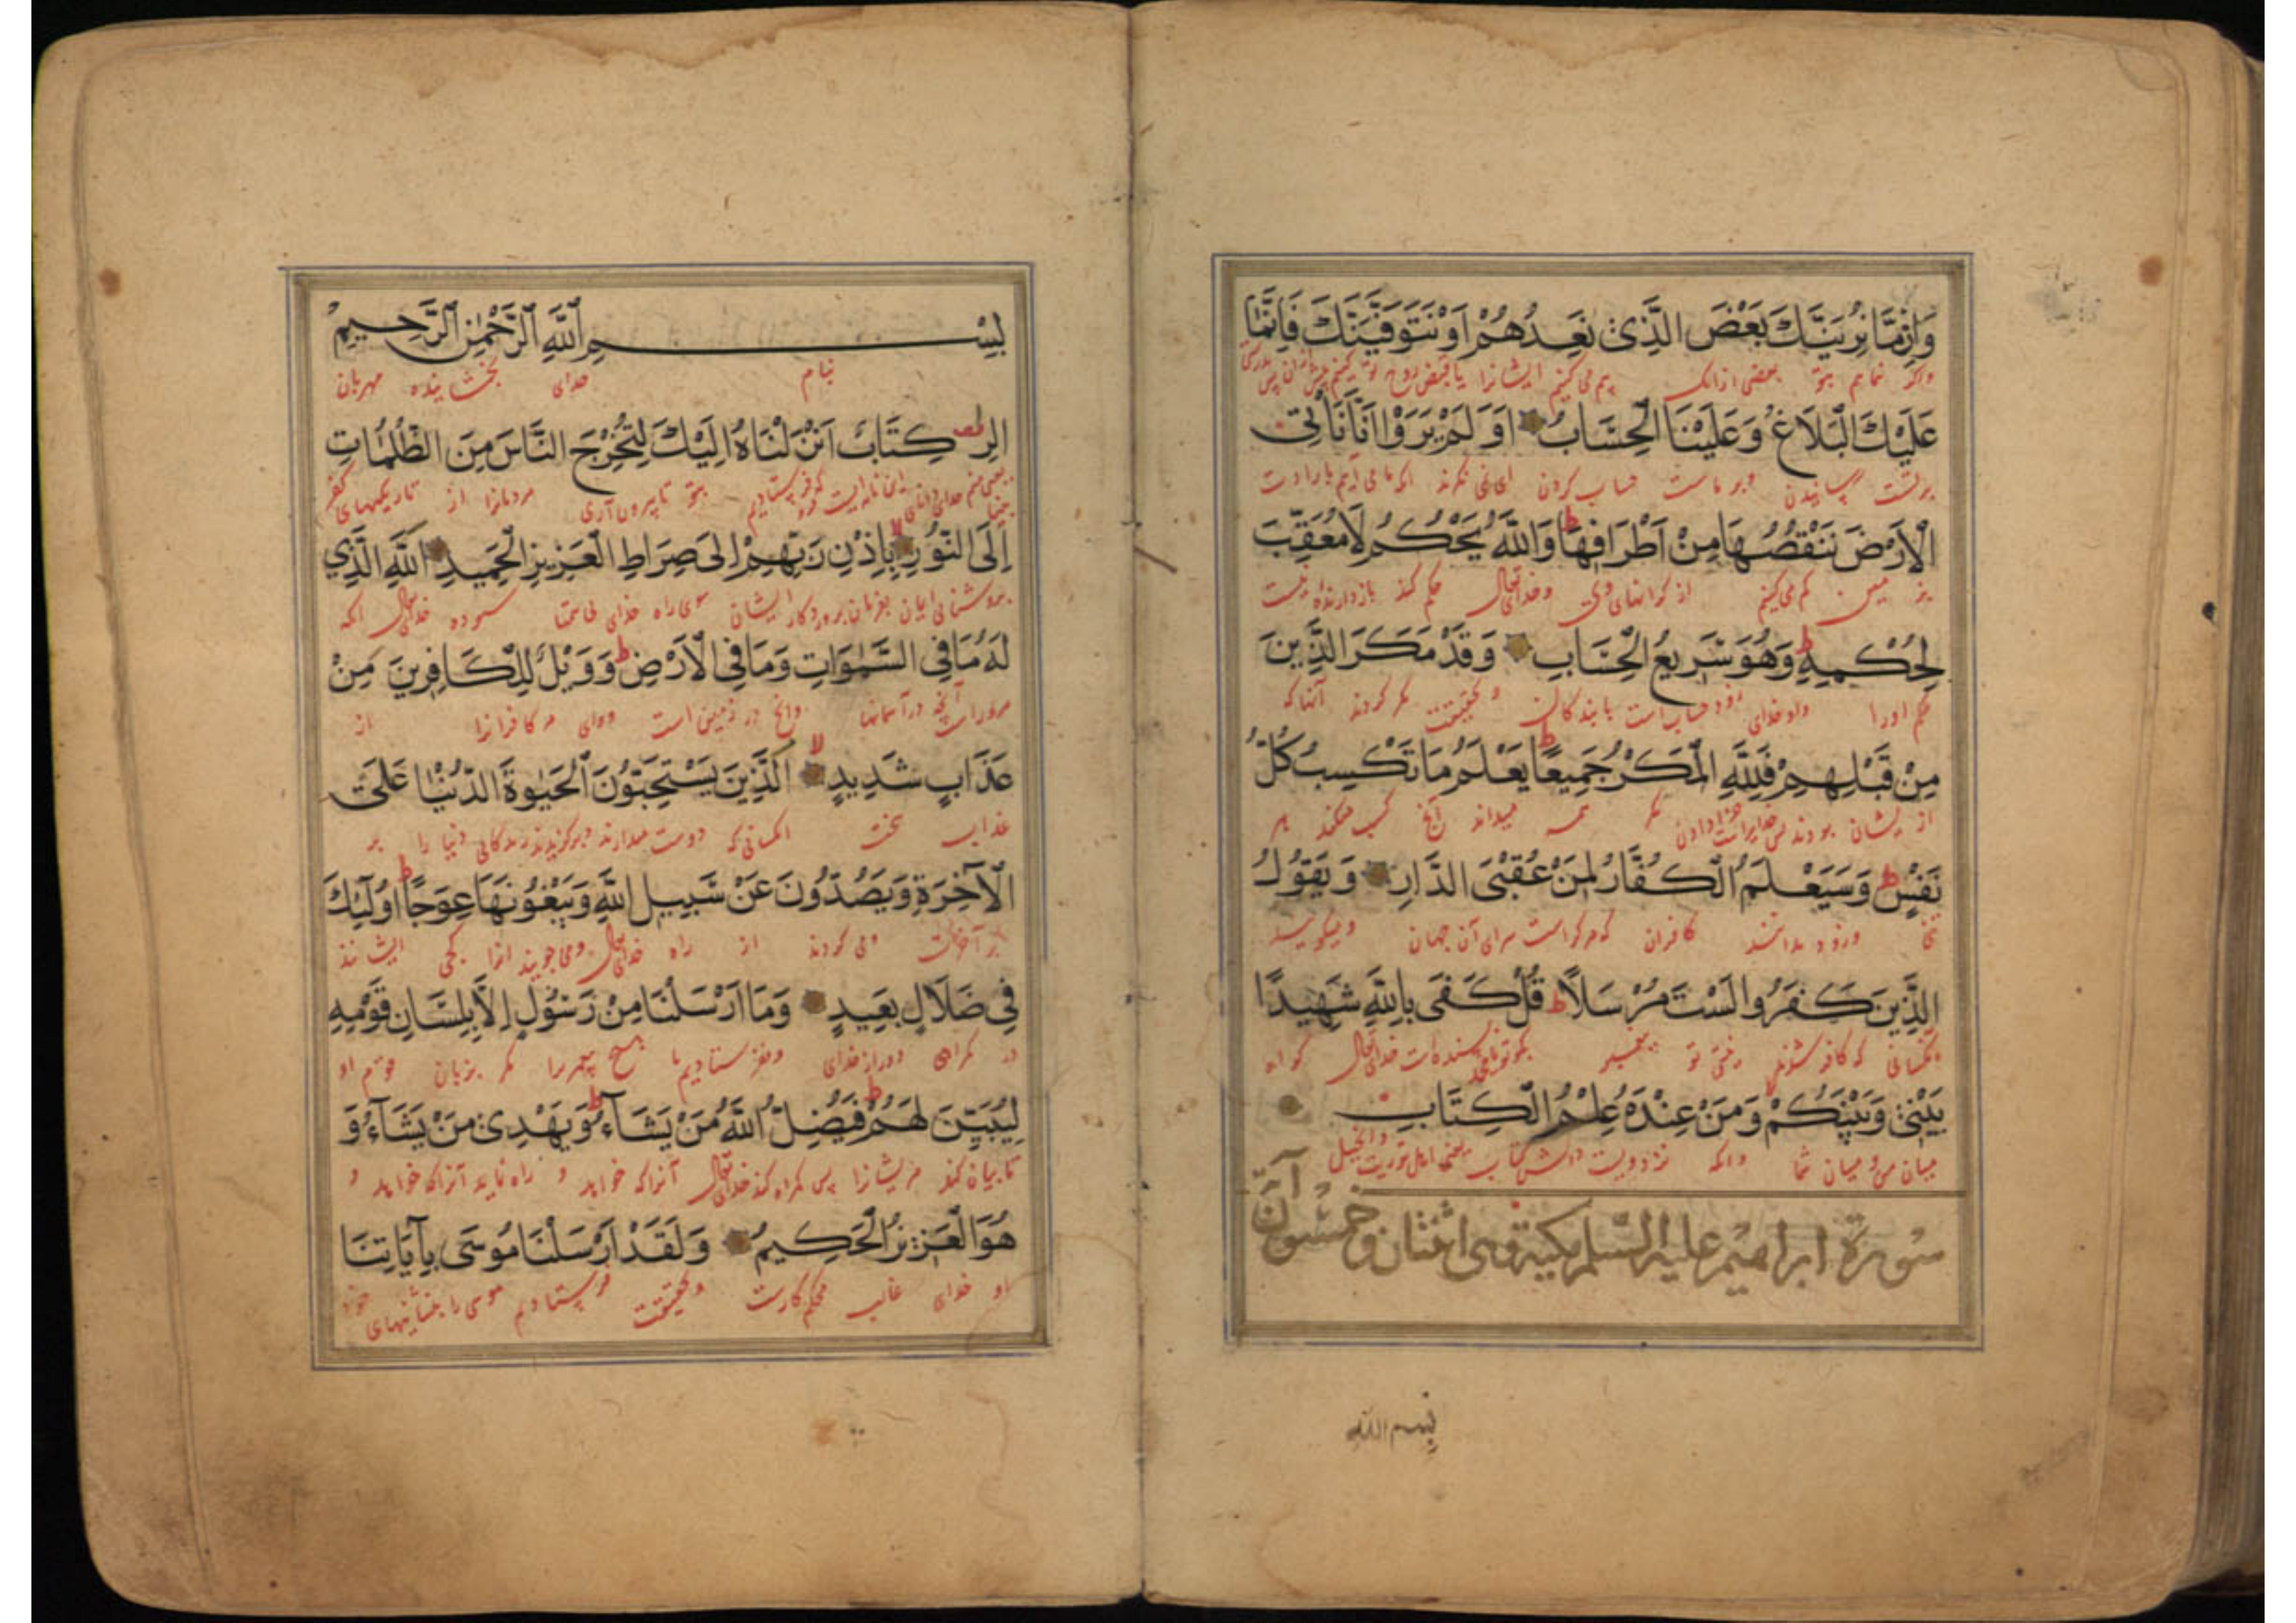 وَاِنْ مَّا نُرِيَنَّكَ بَعْضَ الَّذِى نَعِدُهُمْ اَوْ نَتَوَفَّيَنَّكَ فَاِنَّمَا
واكر نمايم بتو بعضى ازانك بيم مى كنيم ايشانرا يا قبض روح تو كنيم
عَلَيْكَ الْبَلَاغُ وَعَلَيْنَا الْحِسَابُ اَوَلَمْ يَرَوْا اَنَّا نَاْتِى
برتست رسانيدن وبر ماست حساب كردن اى نمى نكرند كه ما مى آريم
الْاَرْضَ نَنْقُصُهَا مِنْ اَطْرَافِهَا ط وَاللّٰهُ يَحْكُمُ لَا مُعَقِّبَ
كم مى كنيم از كرانهاى وى وخداى تعالى حكم كند بازدارنده نيست
لِحُكْمِهِ ط وَهُوَ سَرِيعُ الْحِسَابِ وَقَدْ مَكَرَ الَّذِينَ
حكم اورا واو خداى زود حساب است با بندكان وبحقيقت مكر كردند آنانكه
مِنْ قَبْلِهِمْ فَلِلّٰهِ الْمَكْرُ جَمِيعًا ط يَعْلَمُ مَا تَكْسِبُ كُلُّ
از ايشان بودند پس خدايراست مكر همه ميداند آنچه كسب ميكند هر
نَفْسٍ ط وَسَيَعْلَمُ الْكُفَّارُ لِمَنْ عُقْبَى الدَّارِ وَيَقُولُ
تنى وزود بدانند كافران كه مر كراست سراى آن جهان وميكويند
الَّذِينَ كَفَرُوا لَسْتَ مُرْسَلًا ط قُلْ كَفَى بِاللّٰهِ شَهِيدًا
آنكسانى كه كافر شدند تو پيغمبر بكو خداى تعالى كواه
بَيْنِى وَبَيْنَكُمْ لا وَمَنْ عِنْدَهُ عِلْمُ الْكِتَابِ
ميان من وميان شما وانكه نزد ويست دانش كتاب يعنى اهل توريت وانجيل
سورة ابراهيم عليه السلم مكية وهى اثنتان وخمسون آية
بسم الله
بِسْمِ اللّٰهِ الرَّحْمٰنِ الرَّحِيمِ
بنام خداى بخشاينده مهربان
الر كِتَابٌ اَنْزَلْنَاهُ اِلَيْكَ لِتُخْرِجَ النَّاسَ مِنَ الظُّلُمَاتِ
اين نامه ايست كه فرو فرستاديم بتو تا بيرون آرى مردمانرا از تاريكيهاى كفر
اِلَى النُّورِ لا بِاِذْنِ رَبِّهِمْ اِلى صِرَاطِ الْعَزِيزِ الْحَمِيدِ اَللّٰهِ الَّذِي
بروشنايى ايمان بفرمان پروردكار ايشان سوى راه خداى ستوده خداى تعالى انكه
لَهُ مَا فِي السَّمٰوَاتِ وَمَا فِي الْاَرْضِ ط وَوَيْلٌ لِلْكَافِرِينَ مِنْ
مر اوراست آنچه در آسمانها وانچه در زمين است وواى مر كافرانرا از
عَذَابٍ شَدِيدٍ لا اَلَّذِينَ يَسْتَحِبُّونَ الْحَيٰوةَ الدُّنْيَا عَلَى
عذاب سخت انكسانى كه دوست ميدارند وبركزيدند زندكانى دنيا را بر
الْآخِرَةِ وَيَصُدُّونَ عَنْ سَبِيلِ اللّٰهِ وَيَبْغُونَهَا عِوَجًا ط اُولٰئِكَ
بر آخرت ومى كردند از راه خداى تعالى ومى جويند انرا كجى ايشانند
فِي ضَلَالٍ بَعِيدٍ وَمَا اَرْسَلْنَا مِنْ رَسُولٍ اِلَّا بِلِسَانِ قَوْمِهِ
در كمراهى دور از خداى ونفرستاديم ما هيچ پيغمبر را مكر بزبان قوم او
لِيُبَيِّنَ لَهُمْ ط فَيُضِلُّ اللّٰهُ مَنْ يَشَآءُ ط وَيَهْدِى مَنْ يَشَآءُ وَ
تا بيان كند مر ايشانرا پس كمراه كند خداى تعالى آنرا كه خواهد و راه نمايد آنرا كه خواهد و
هُوَ الْعَزِيزُ الْحَكِيمُ وَلَقَدْ اَرْسَلْنَا مُوسَى بِآيَاتِنَا
او خداى غالب محكم كارست وبحقيقت فرستاديم موسى را بنشانيهاى خود